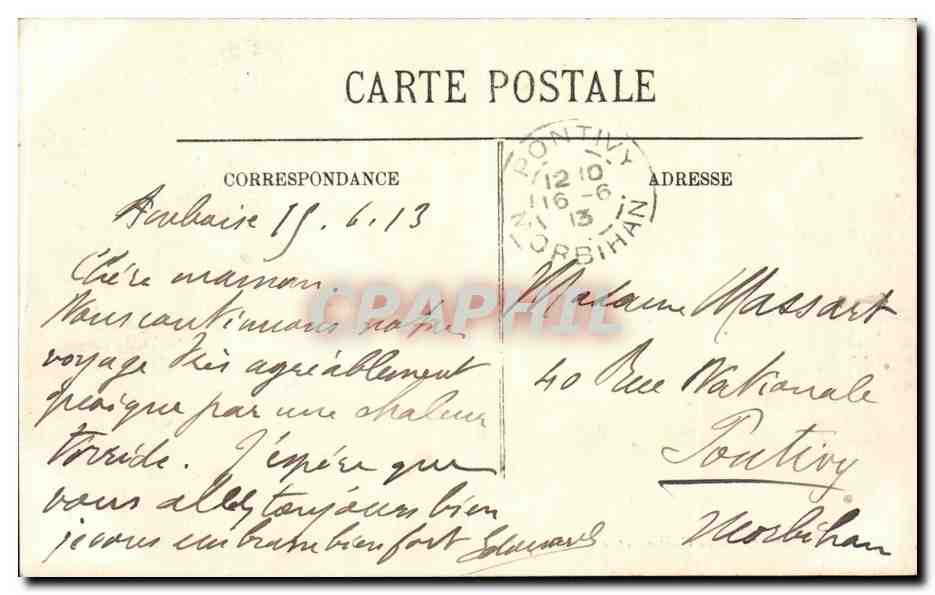 CARTE POSTALE
CORRESPONDANCE
ADRESSE
PONTIVY
12 10
16 -6
13
MORBIHAN
15.6.13
Chère maman
Nous continuons notre
voyage très agréablement
quoique par une chaleur
torride. J'espère que
vous allez toujours bien
je vous embrasse bien fort Edouard
Madame Massart
40 Rue Nationale
Pontivy
Morbihan
CPAPHIL